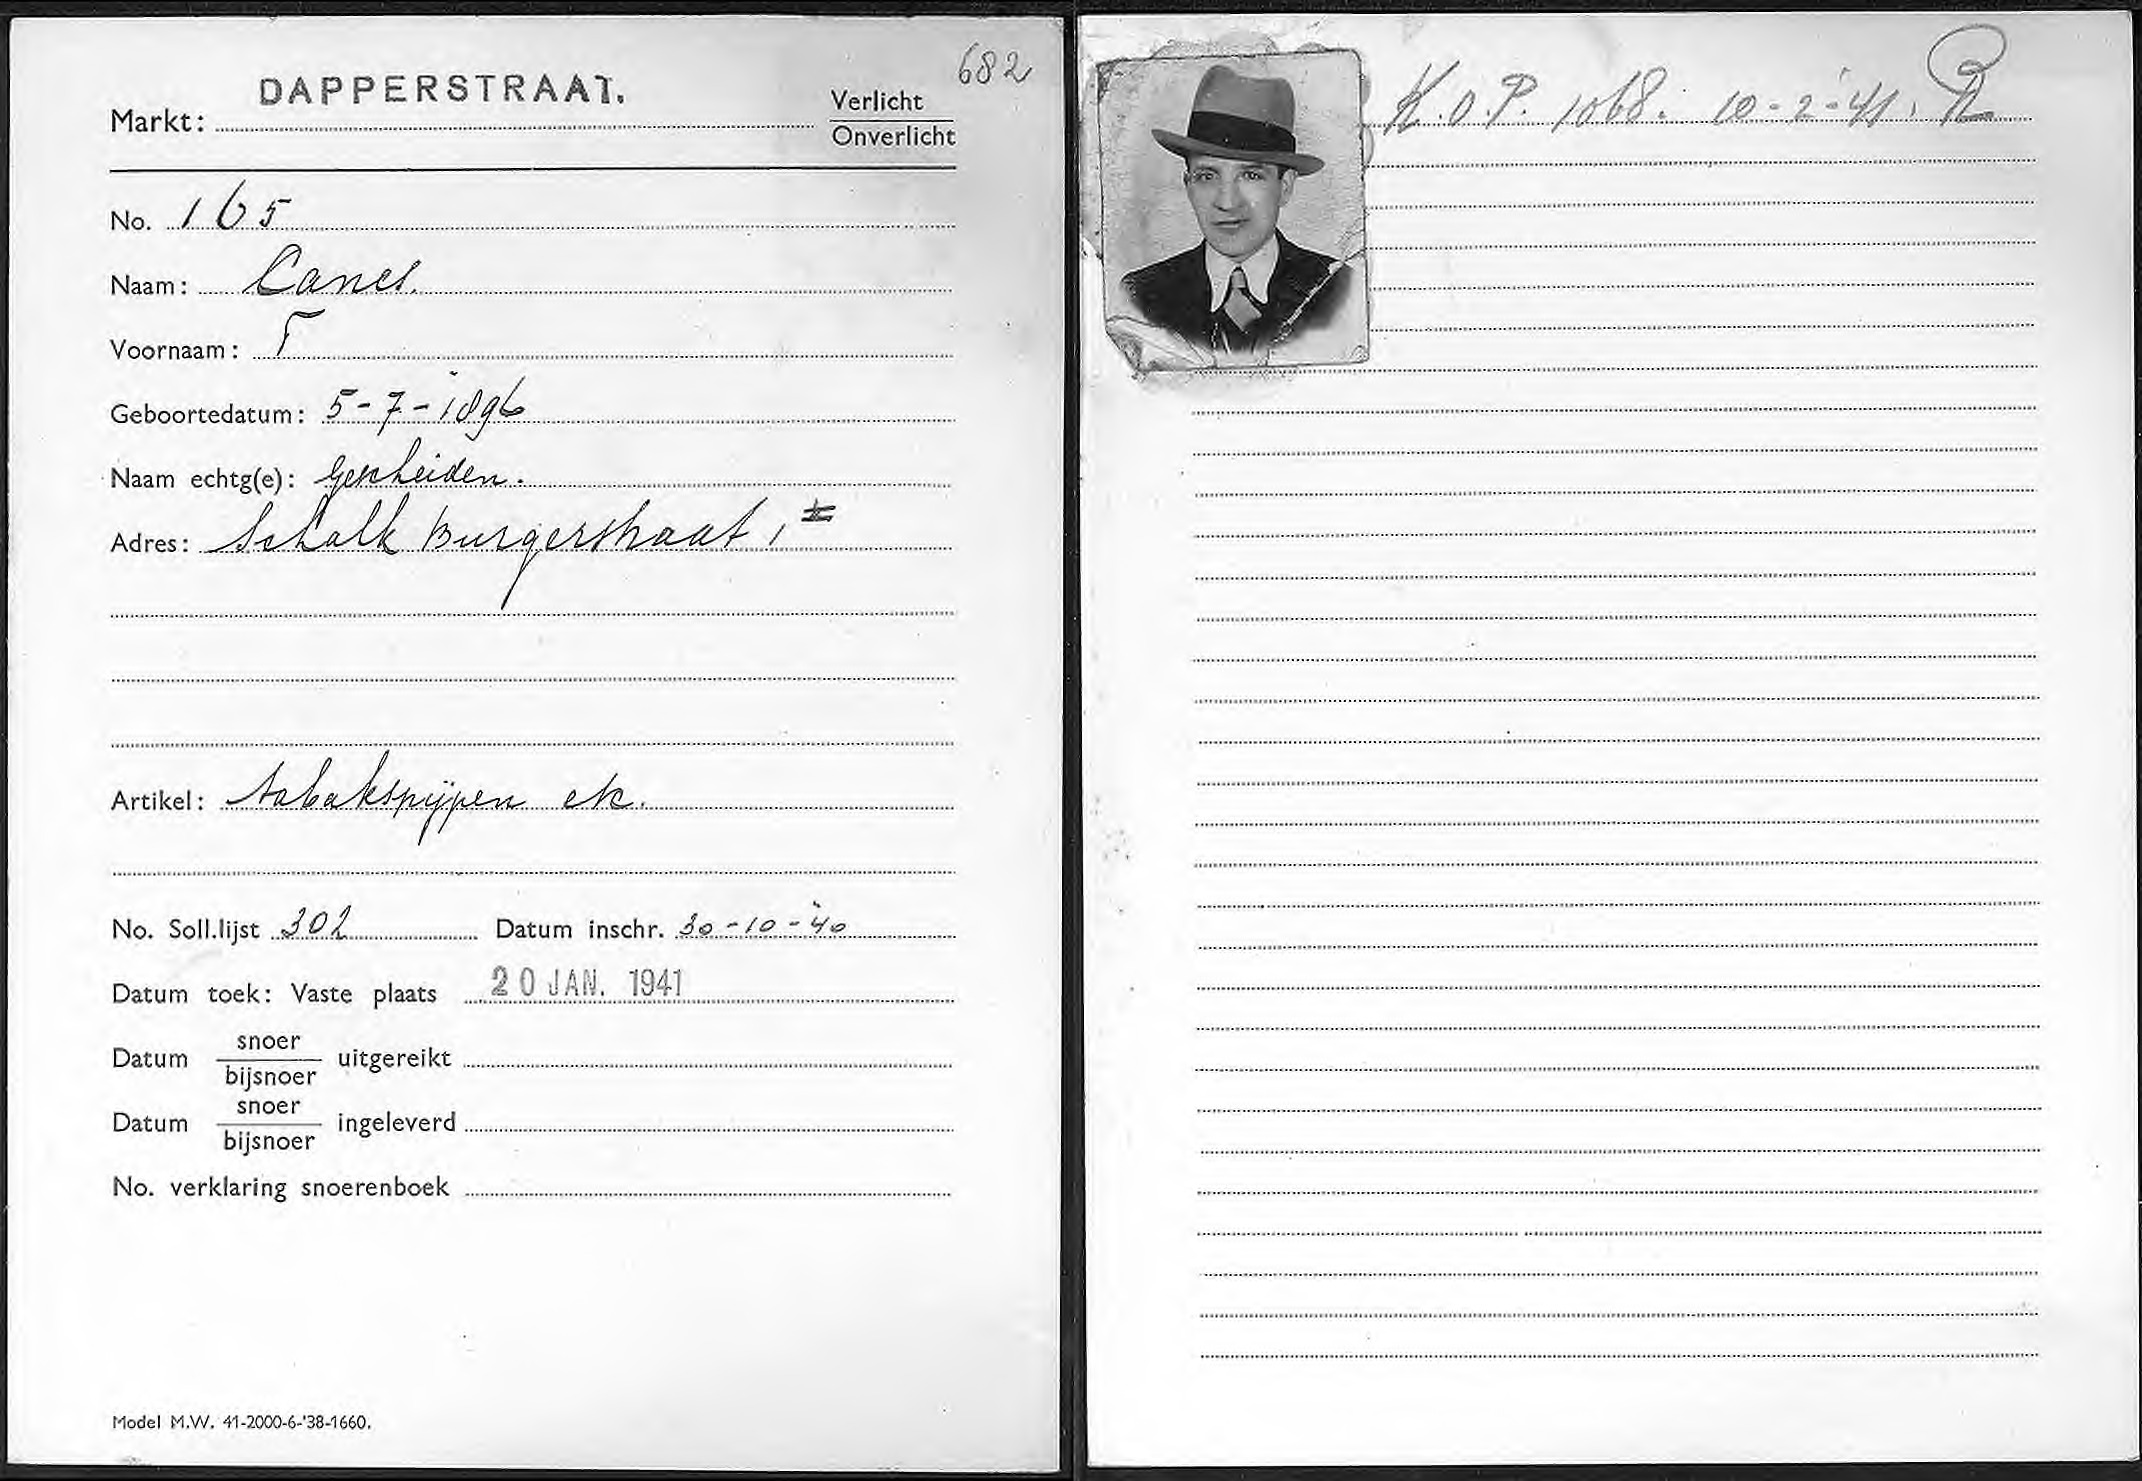 682
DAPPERSTRAAT.
Markt:
Verlicht
Onverlicht
No. 165
Naam: Canes.
Voornaam:
Geboortedatum: 5-7-1896
Naam echtg(e): Gescheiden.
Adres: Schalk Burgerstraat 1
Artikel: tabakspijpen etc.
No. Soll.lijst 302 Datum inschr. 30-10-'40
Datum toek: Vaste plaats 20 JAN. 1941
Datum snoer/bijsnoer uitgereikt
Datum snoer/bijsnoer ingeleverd
No. verklaring snoerenboek
Model M.W. 41-2000-6-'38-1660.
K.O.P. 1068. 10-2-'41.